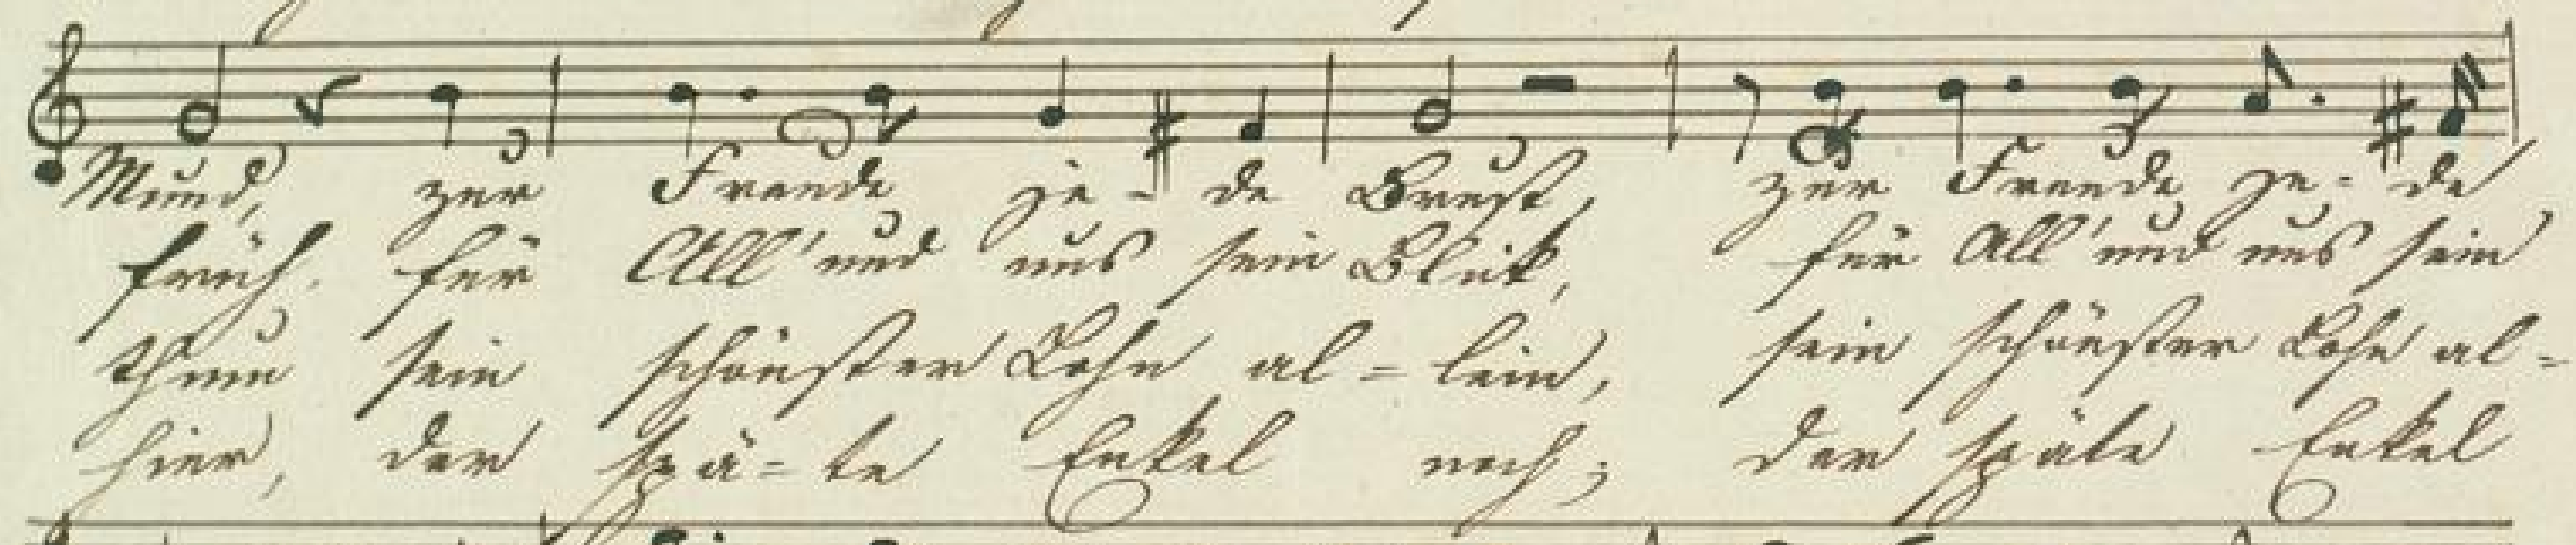 Mund, zur Freude je - de Brust, zur Freude je - de
früh. für All' und uns sein Blick, für All' und uns sein
thum sein schönster Lohn al - lein, sein schönster Lohn al -
hier, der spä - te Enkel noch; der späte Enkel